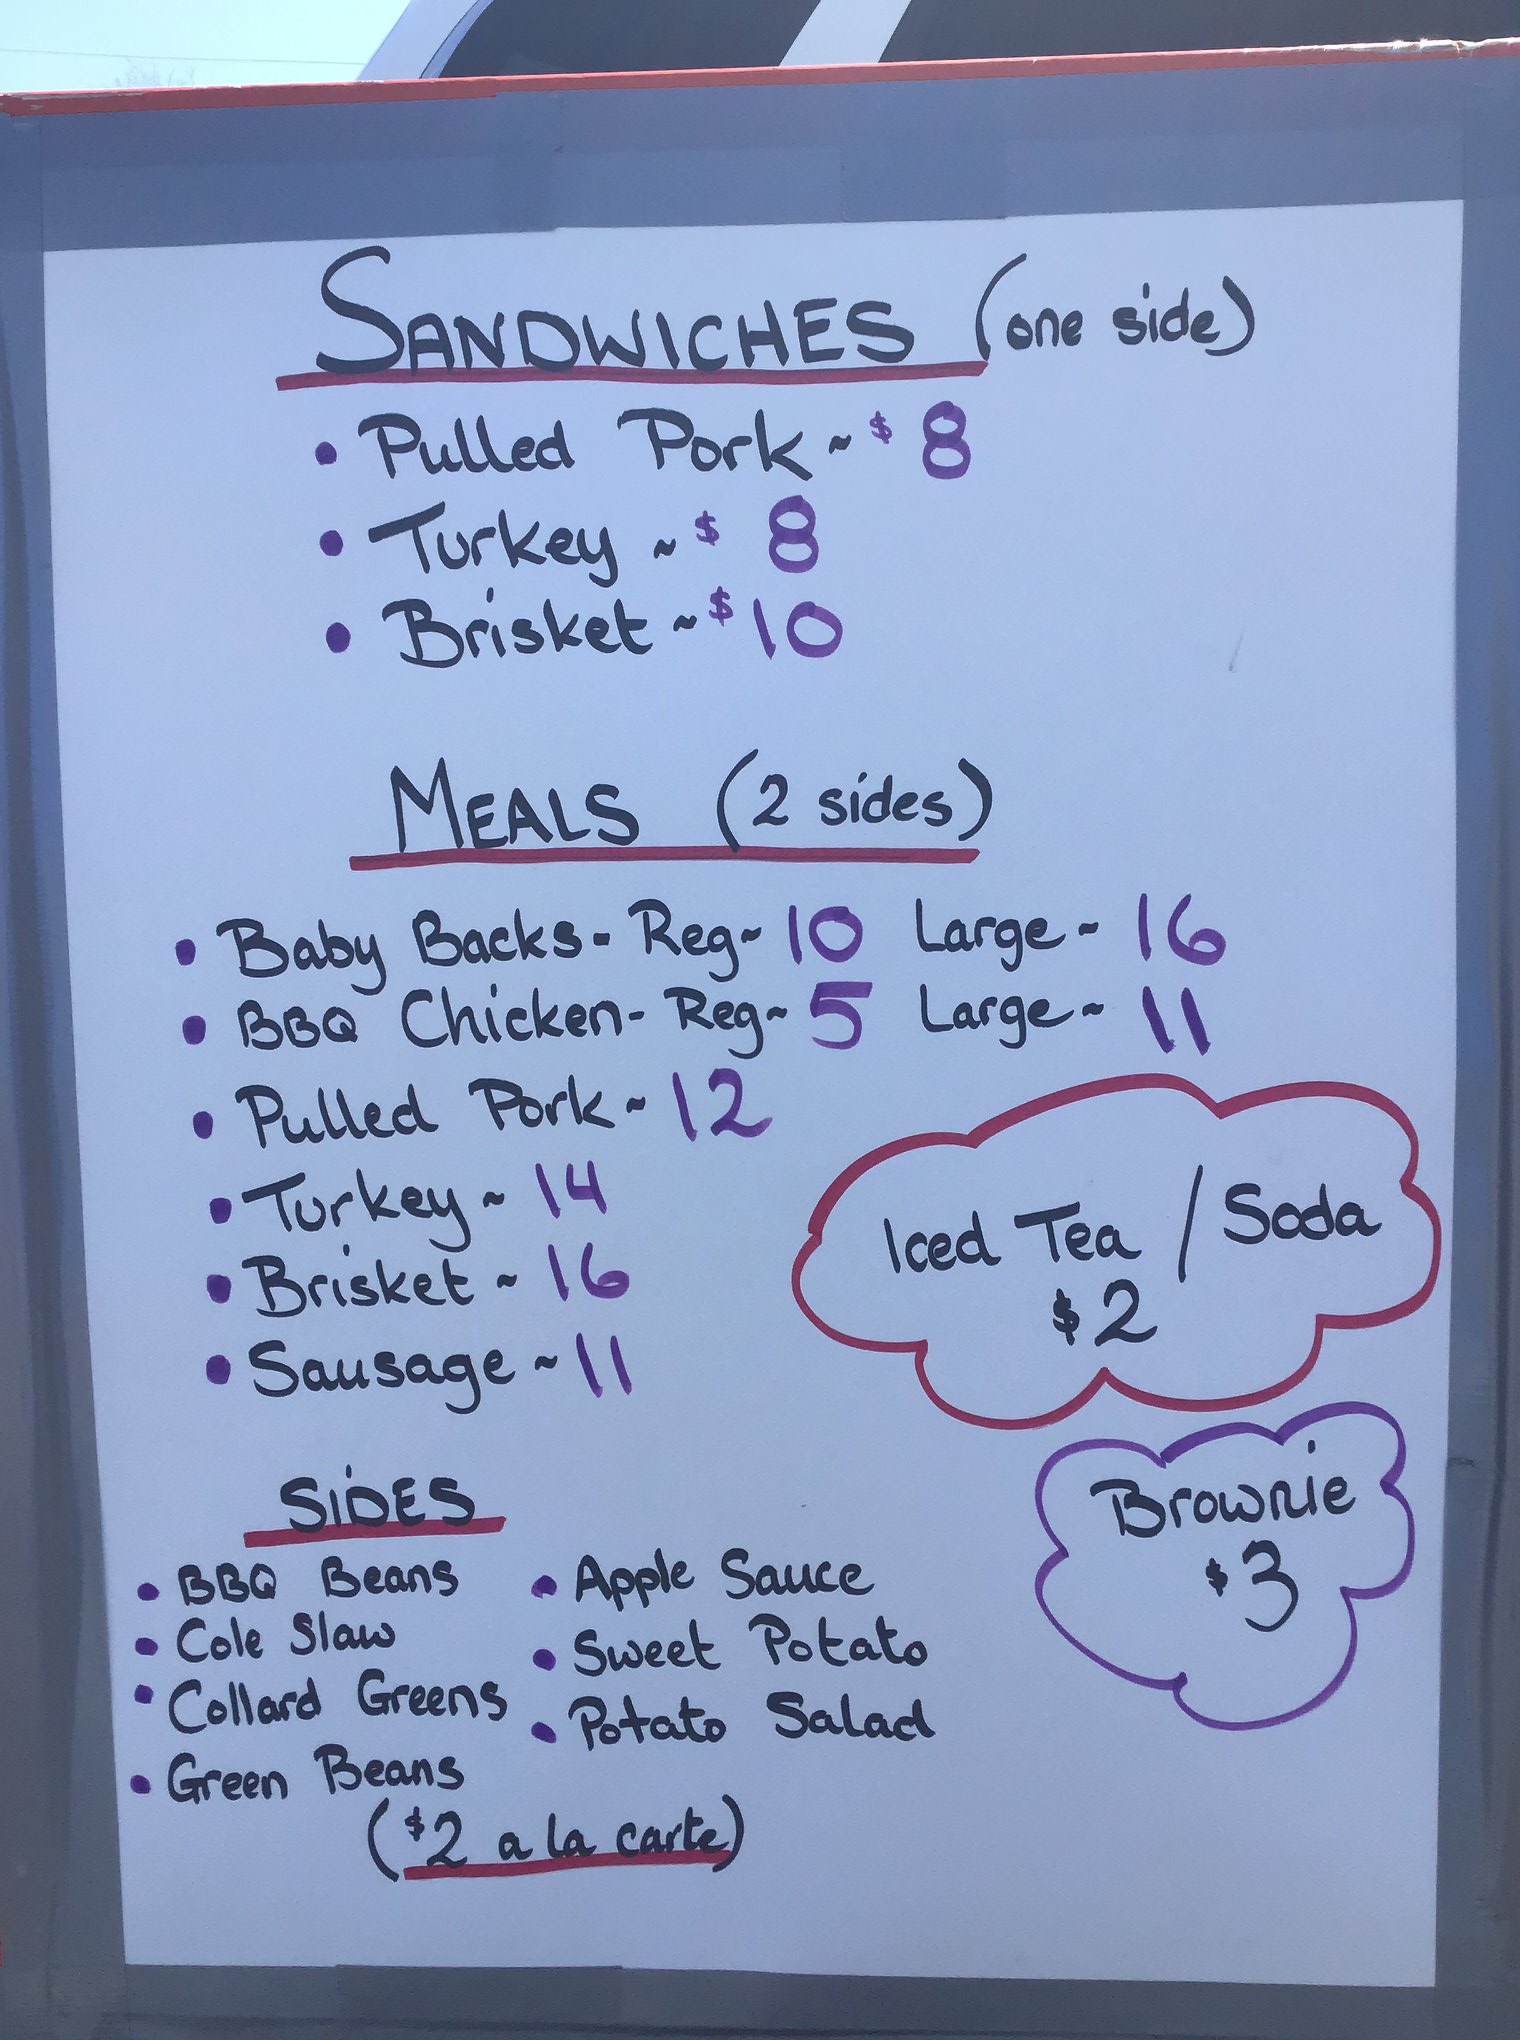 SANDWICHES (one side)
• Pulled Pork ~ $8
• Turkey ~ $8
• Brisket ~ $10
MEALS (2 sides)
• Baby Backs - Reg ~ 10 Large ~ 16
• BBQ Chicken - Reg ~ 5 Large ~ 11
• Pulled Pork ~ 12
• Turkey ~ 14
• Brisket ~ 16
• Sausage ~ 11
Iced Tea / Soda
$2
Brownie
$3
SiDES
• BBQ Beans
• Cole Slaw
• Collard Greens
• Green Beans
• Apple Sauce
• Sweet Potato
• Potato Salad
($2 a la carte)